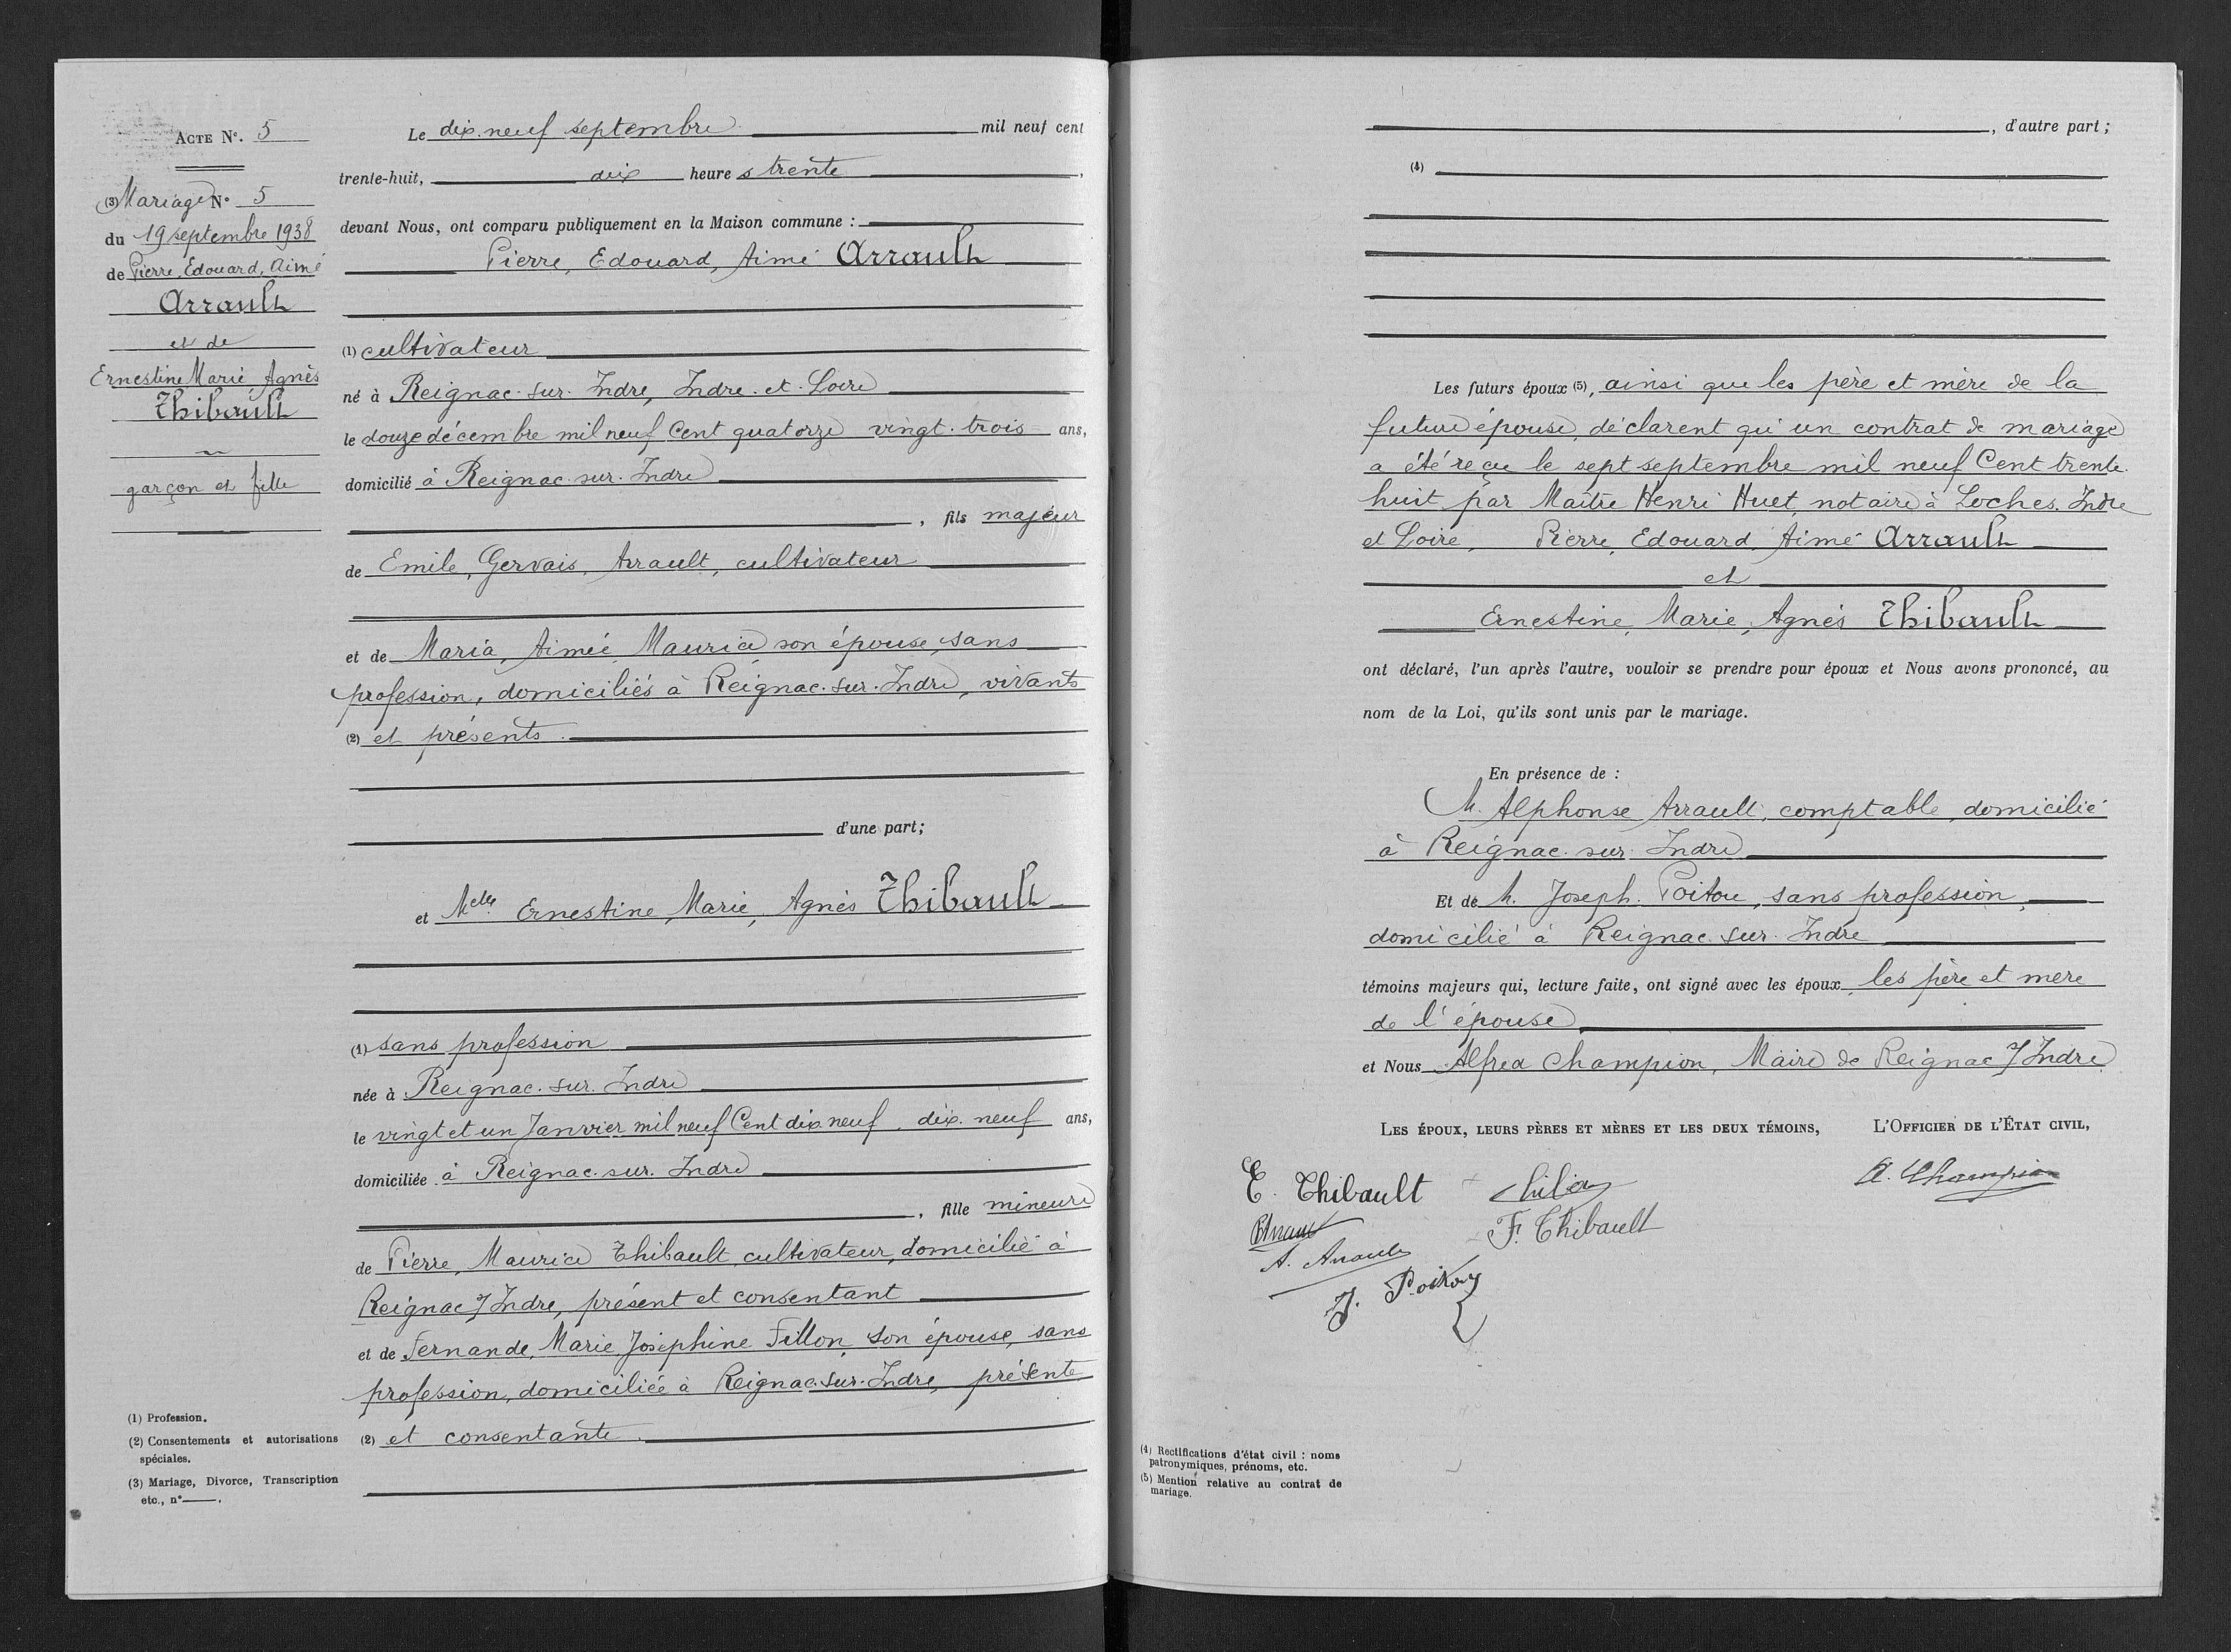 ACTE N°. 5
(3) Mariage N° 5
du 19 septembre 1938
de Pierre, Edouard, Aimé
Arrault
et de
Ernestine Marie, Agnès
Thibault
garçon et fille
Le dix-neuf septembre mil neuf cent
trente-huit, dix heures trente
devant Nous, ont comparu publiquement en la Maison commune :
Pierre, Edouard, Aimé Arrault
(1) cultivateur
né à Reignac-sur-Indre, Indre-et-Loire
le douze décembre mil neuf Cent quatorze vingt-trois ans,
domicilié à Reignac-sur-Indre
, fils majeur
de Emile, Gervais, Arrault, cultivateur
et de Maria, Aimée Maurice son épouse, sans
profession, domiciliés à Reignac-sur-Indre, vivants
(2) et présents.
d'une part;
et Melle Ernestine, Marie, Agnès Thibault
(1) sans profession
née à Reignac-sur-Indre
le vingt et un Janvier mil neuf Cent dix neuf, dix-neuf ans,
domiciliée à Reignac-sur-Indre
, fille mineure
de Pierre, Maurice Thibault, cultivateur, domicilié à
Reignac s/ Indre, présent et consentant
et de Fernande, Marie, Joséphine Fillon, son épouse, sans
profession, domiciliée à Reignac-sur-Indre, présente
(2) et consentante.
(1) Profession.
(2) Consentements et autorisations
spéciales.
(3) Mariage, Divorce, Transcription
etc., n° .
, d'autre part;
(4)
Les futurs époux (5), ainsi que les père et mère de la
future épouse, déclarent qu'un contrat de mariage
a été reçu le sept septembre mil neuf Cent trente-
huit par Maître Henri Huet, notaire à Loches. Indre
et Loire, Pierre, Edouard, Aimé Arrault
et
Ernestine, Marie, Agnès Thibault
ont déclaré, l'un après l'autre, vouloir se prendre pour époux et Nous avons prononcé, au
nom de la Loi, qu'ils sont unis par le mariage.
En présence de :
M. Alphonse Arrault, comptable, domicilié
à Reignac-sur-Indre
Et de M. Joseph Poitou, sans profession,
domicilié à Reignac-sur-Indre
témoins majeurs qui, lecture faite, ont signé avec les époux, les père et mère
de l'épouse
et Nous Alfred Champion, Maire de Reignac s/ Indre
LES ÉPOUX, LEURS PÈRES ET MÈRES ET LES DEUX TÉMOINS,
L'OFFICIER DE L'ÉTAT CIVIL,
E. Thibault
A. Champion
F. Thibault
A. Arrault
J. Poitou
(4) Rectifications d'état civil : noms
patronymiques, prénoms, etc.
(5) Mention relative au contrat de
mariage.